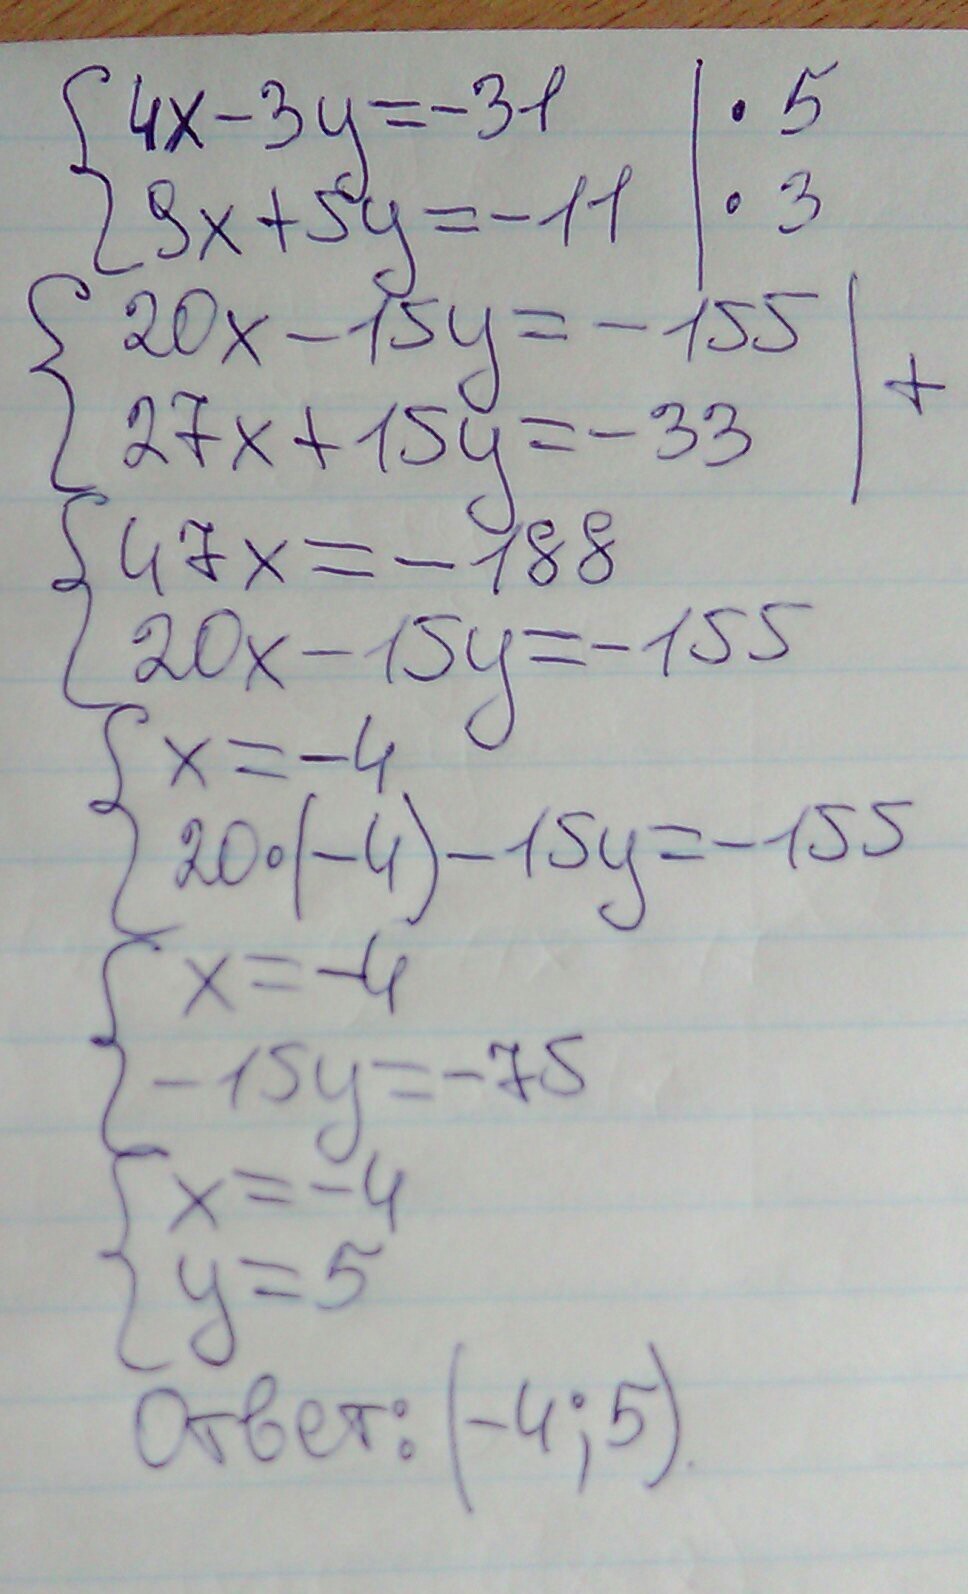 {4x-3y=-31 | · 5
{9x+5y=-11 | · 3
{20x-15y=-155 | +
{27x+15y=-33
{47x=-188
{20x-15y=-155
{x=-4
{20·(-4)-15y=-155
{x=-4
{-15y=-75
{x=-4
{y=5
Ответ: (-4;5).